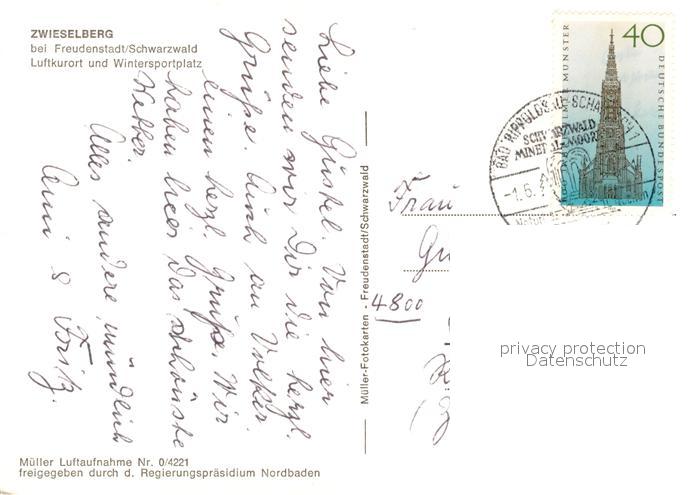 ZWIESELBERG
bei Freudenstadt/Schwarzwald
Luftkurort und Wintersportplatz
Liebe Güstel. Von hier
senden wir Dir die herzl.
Grüße. Auch an Volker
einen herzl. Gruß. Wir
haben hier das schönste
Wetter.
Alles andere mündlich
Anni & Fritz.
Müller Luftaufnahme Nr. 0/4221
freigegeben durch d. Regierungspräsidium Nordbaden
Müller-Fotokarten - Freudenstadt/Schwarzwald
40
MÜNSTER
DEUTSCHE BUNDESPOST
BAD RIPPOLDSAU-SCHAPBACH 1
SCHWARZWALD
MINERAL-MOOR
-1.6.
Frau
4800
privacy protection
Datenschutz